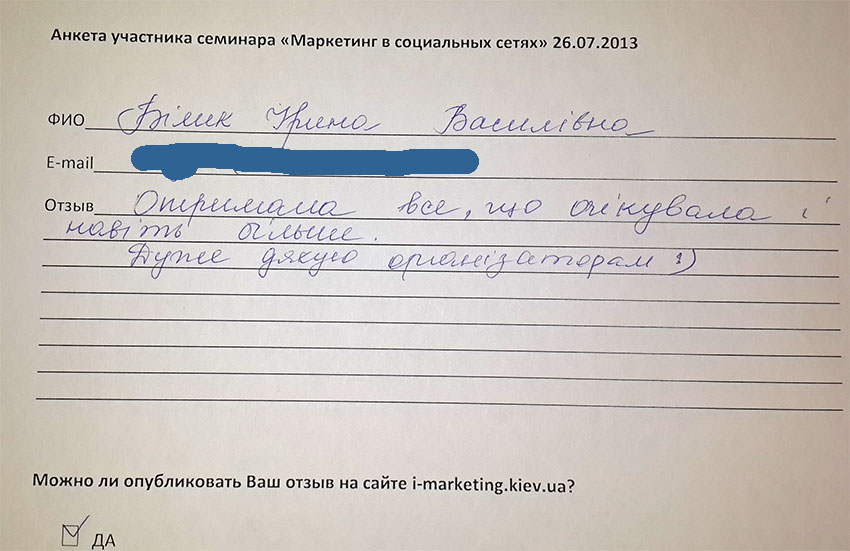 Анкета участника семинара «Маркетинг в социальных сетях» 26.07.2013
ФИО Білик Ірина Василівна
E-mail
Отзыв Отримала все, що очікувала і
навіть більше.
Дуже дякую організаторам :)
Можно ли опубликовать Ваш отзыв на сайте i-marketing.kiev.ua?
ДА